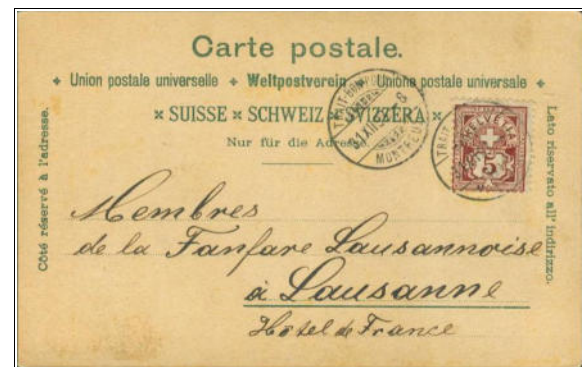 Carte postale.
Union postale universelle + Weltpostverein + Unione postale universale
× SUISSE × SCHWEIZ × SVIZZERA ×
Nur für die Adresse.
Côté réservé à l'adresse.
Lato riservato all' indirizzo.
HELVETIA
5
TRAIT
MONTREUX
31 XII
8
TRAIT
Membres
de la Fanfare Lausannoise
à Lausanne
Hôtel de France